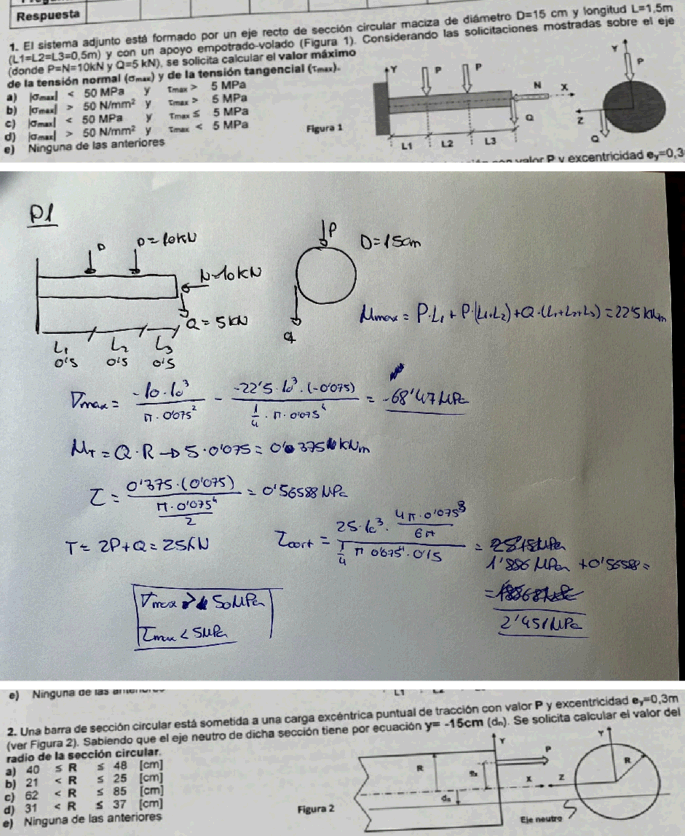 Respuesta
1. El sistema adjunto está formado por un eje recto de sección circular maciza de diámetro D=15 cm y longitud L=1,5m
(L1=L2=L3=0,5m) y con un apoyo empotrado-volado (Figura 1). Considerando las solicitaciones mostradas sobre el eje
(donde P=N=10kN y Q=5 kN), se solicita calcular el valor máximo
de la tensión normal (σmax) y de la tensión tangencial (τmax).
a) |σmax| < 50 MPa y τmax > 5 MPa
b) |σmax| > 50 N/mm² y τmax > 5 MPa
c) |σmax| < 50 MPa y τmax ≤ 5 MPa
d) |σmax| > 50 N/mm² y τmax < 5 MPa
e) Ninguna de las anteriores
Figura 1
Y P P N X Q
L1 L2 L3
Y P Z Q
valor P y excentricidad ey=0,3
P1
P P=10kN
N=10kN
Q=5kN
L1 L2 L3
0'5 0'5 0'5
P D=15cm
q
Mmax = P·L1 + P·(L1+L2)+Q·(L1+L2+L3) = 22'5 kNm
∇max = -10·10³ / π·0'075² - -22'5·10³·(-0'075) / ¼·π·0'075⁴ = -68'47 MPa
MT = Q·R → 5·0'075 = 0'375 kNm
τ = 0'375·(0'075) / π·0'075⁴ / 2 = 0'56588 MPa
T = 2P+Q = 25kN
τcort = 25·10³· 4π·0'075³ / 6π / ¼ π 0'075⁴·0'15 =
1'886 MPa +0'56588 =
= 2'451 MPa
∇max > 50MPa
τmax < 5MPa
e) Ninguna de las anteriores
L1
2. Una barra de sección circular está sometida a una carga excéntrica puntual de tracción con valor P y excentricidad ey=0,3m
(ver Figura 2). Sabiendo que el eje neutro de dicha sección tiene por ecuación y= -15cm (dn). Se solicita calcular el valor del
radio de la sección circular.
a) 40 ≤ R ≤ 48 [cm]
b) 21 < R ≤ 25 [cm]
c) 62 < R ≤ 85 [cm]
d) 31 < R ≤ 37 [cm]
e) Ninguna de las anteriores
Figura 2
R Y P X dn
Z Y R
Eje neutro